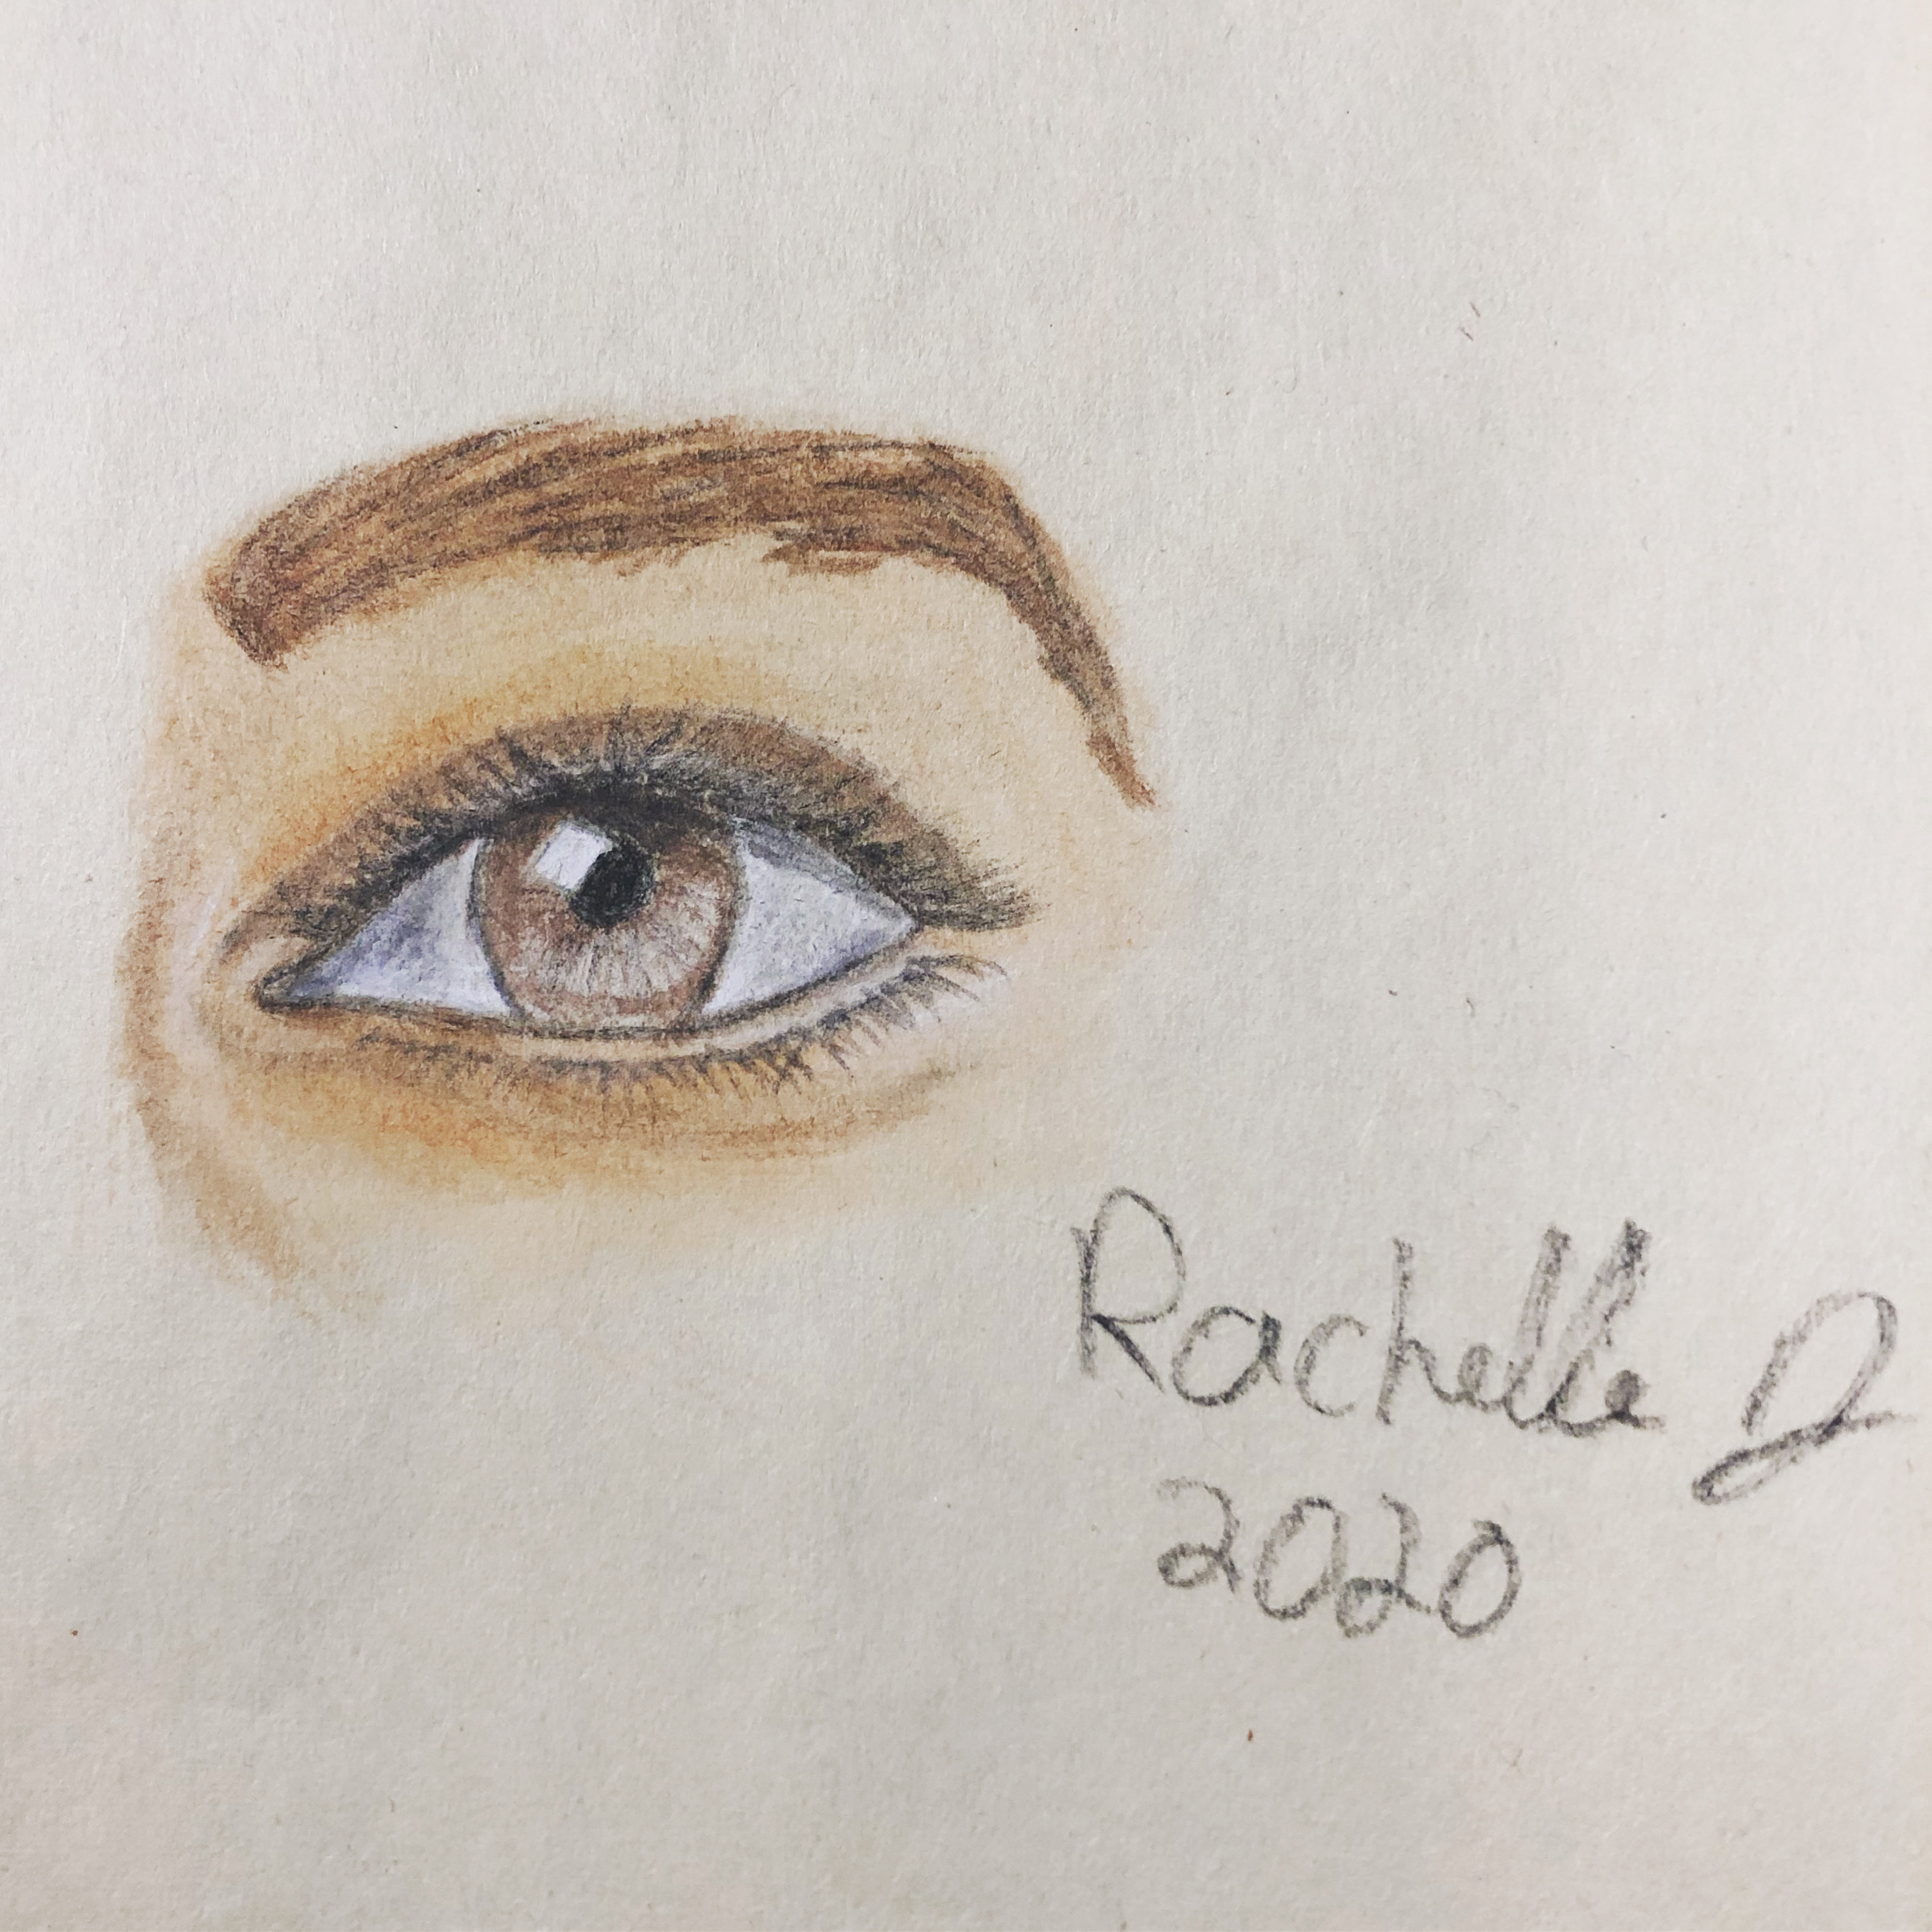 Rachelle D
2020